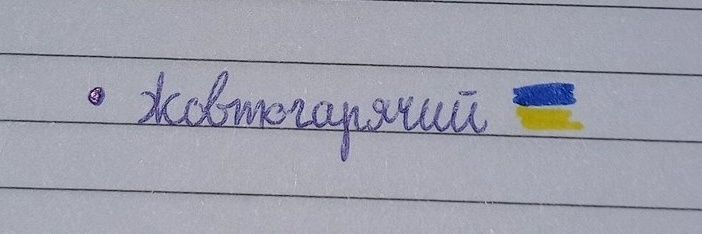 • жовтогарячий